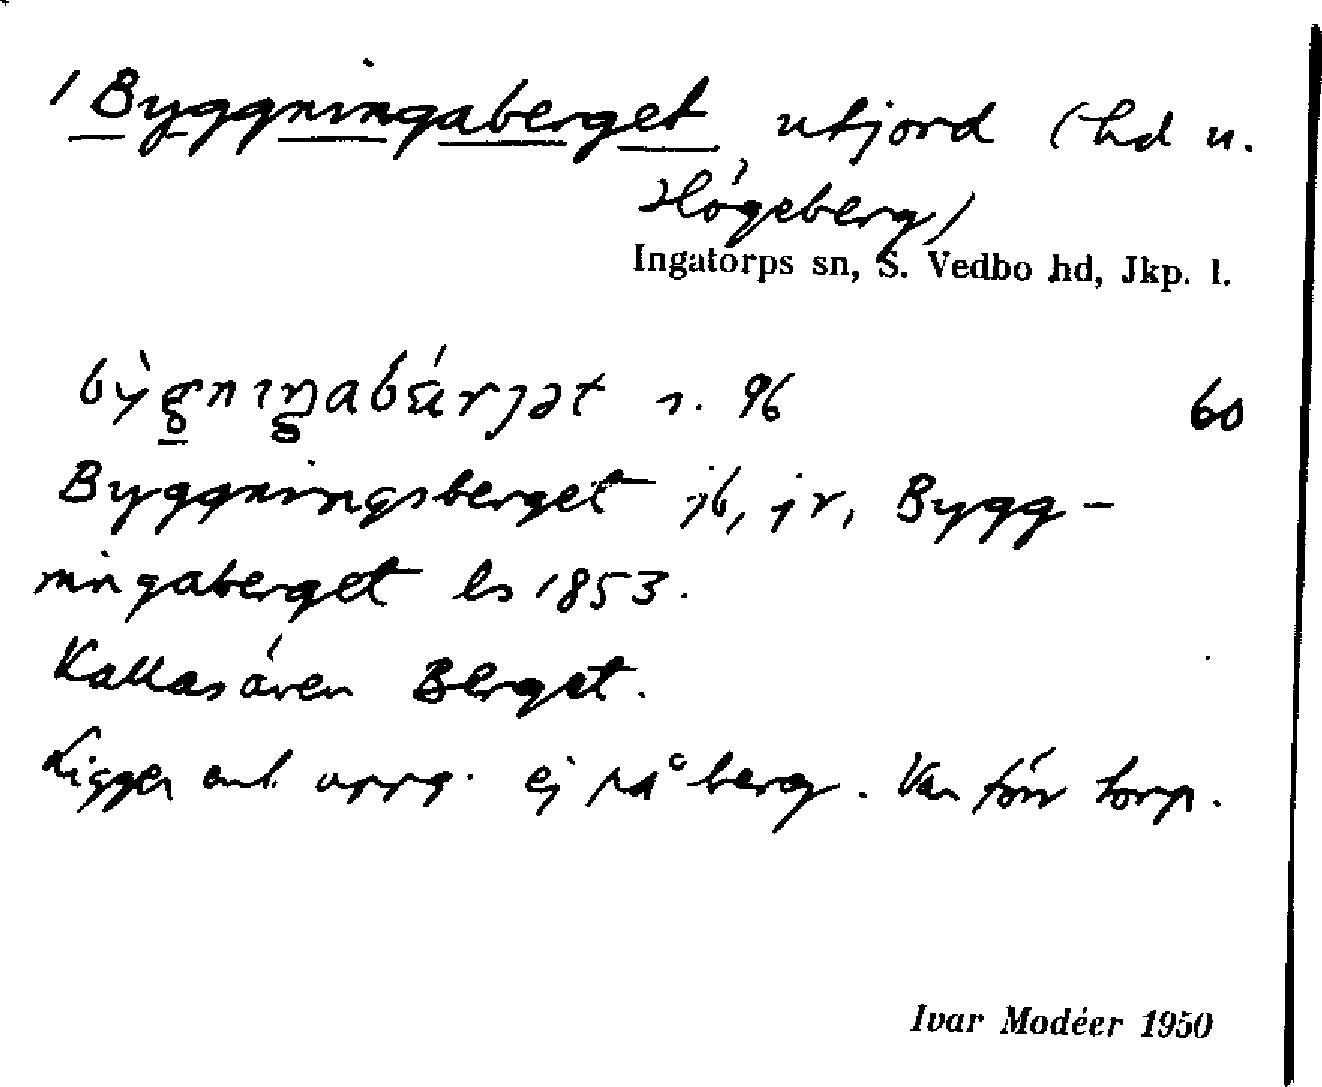 / Byggningaberget, utjord (hd u.
Högeberg)
Ingatorps sn, S. Vedbo hd, Jkp. l.
s. 96 60
Byggningsberget jb, jr, Bygg-
ningaberget ls 1853.
Kallas även Berget.
Ligger enl. uppg. ej på berg. Var förr torp.
Ivar Modéer 1950